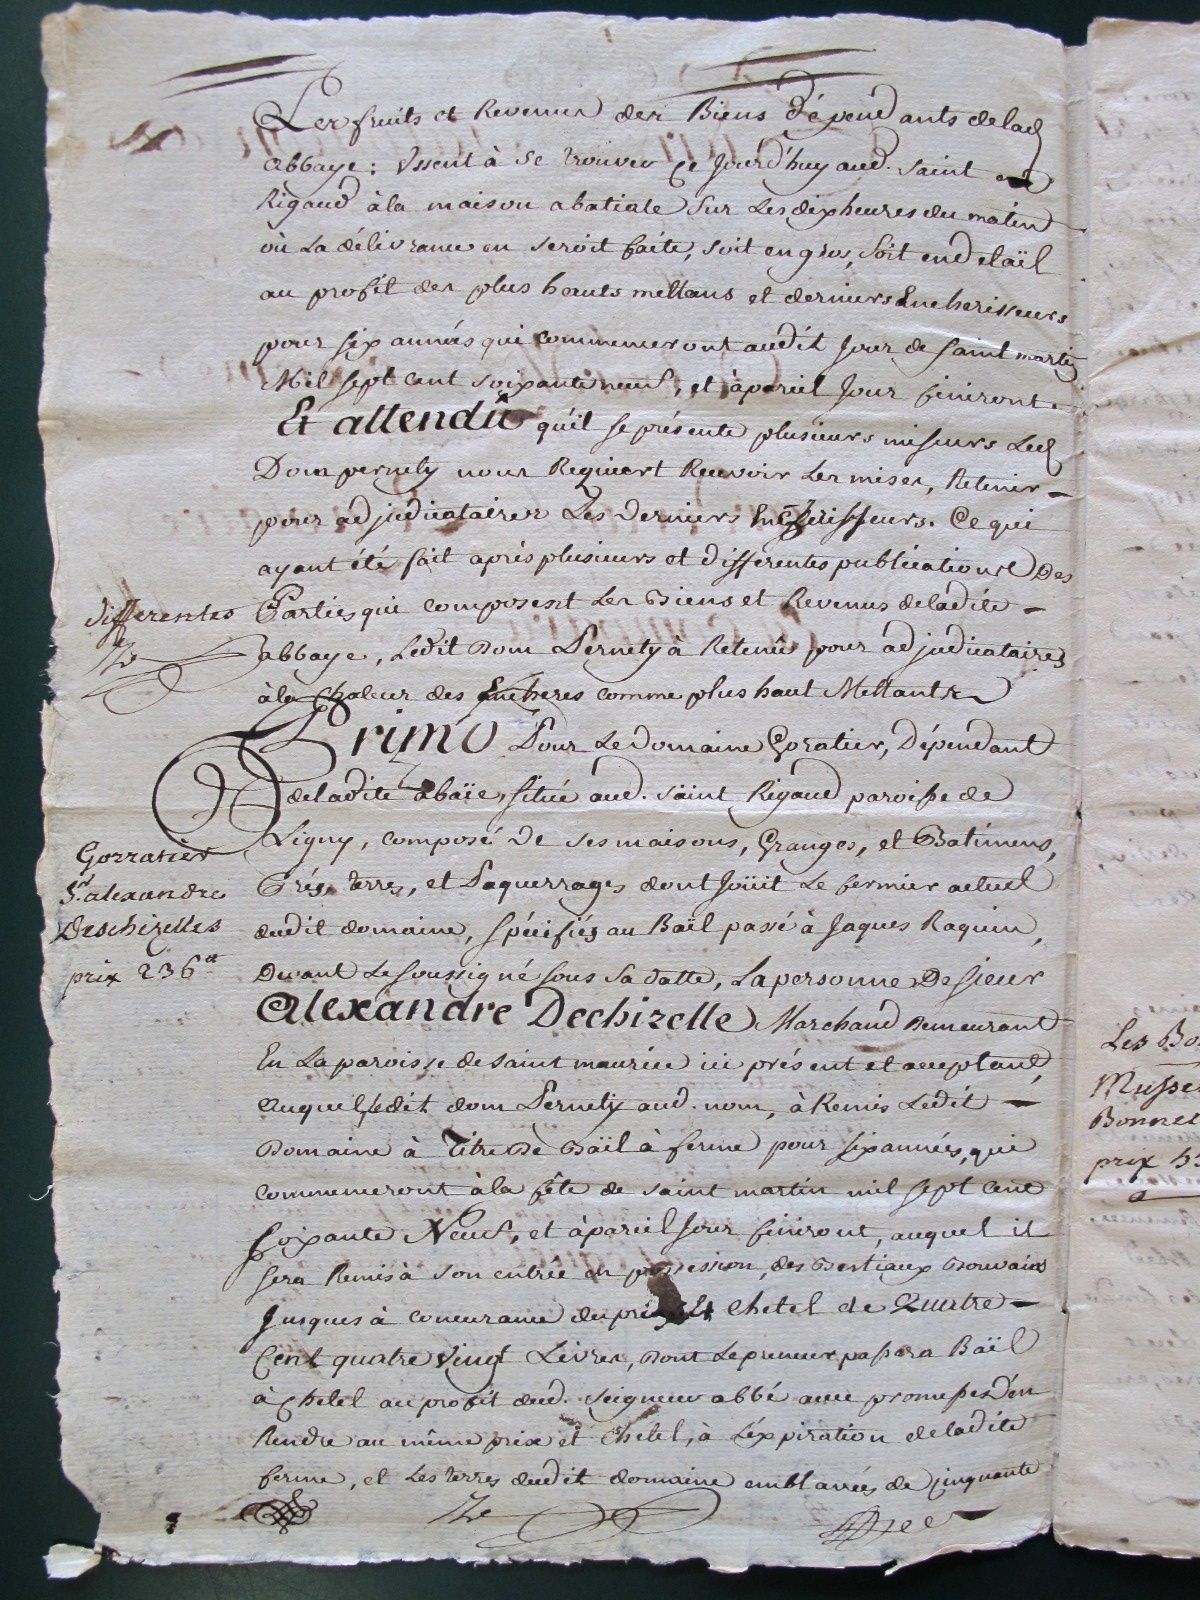 Les fruits et Revenus des Biens dépendants delad
abbaye; ussent à se trouver ce Jourd'huy aud. saint
Rigaud à la maison abatiale sur les dix heures du matin
où La délivrance en seroit faite, soit en gros, soit en détaïl
au profit des plus hauts mettans et derniers Encherisseurs
pour six années qui commenceront audit Jour de saint martin
Mil sept cent soixante neuf, et à pareil Jour finiront
Et attendû qu'il se présente plusieurs miseurs Led
Dom pernety nous Requiert Recevoir Les mises, Retenir
pour adjudicataires Les Derniers Enchérisseurs. Ce qui
ayant été fait aprés plusieurs et differentes publications Des
differentes
Parties qui composent Les Biens et Revenus deladite
abbaye, Ledit Dom Pernety à Retenû pour adjudicataires
à la Chaleur des Encheres comme plus haut Mettants
Primo Pour Le Domaine Goratier, Dépendant
deladite abaïe, situé aud. saint Rigaud paroisse de
Ligny, composé De ses maisons, Granges, et Batimens,
Prés, terres, et Paquerrages dont Joüit Le fermier actuel
dudit domaine, spécifiés au Baïl passé à Jaques Raquin,
Devant Le soussigné sous sa datte, La personne De sieur
Alexandre Dechizelle Marchand Demeurant
En La paroisse de saint maurice ici présent et acceptant,
auquel ledit dom Pernety aud. nom, à Remis Ledit
Domaine à Titre De Baïl à ferme pour six années, qui
commenceront à la fête de saint martin mil sept cent
soixante Neuf, et à pareil Jour finiront, auquel il
sera Remis à son entrée en possession, des Bestiaux
Jusques à concurance du prix et chetel de Quatre
Cent quatre vingt Livres, Dont Le preneur passera Baïl
à Chetel au profit dud. seigneur abbé avec promesse d'en
Rendre au même prix et Chetel, à L'éxpiration deladite
ferme, et Les terres dudit domaine emblavées de cinquante
Gorratier
Sr. alexandre
Deschizelles
prix 236tt
Les Bo
Musse
Bonnet
prix